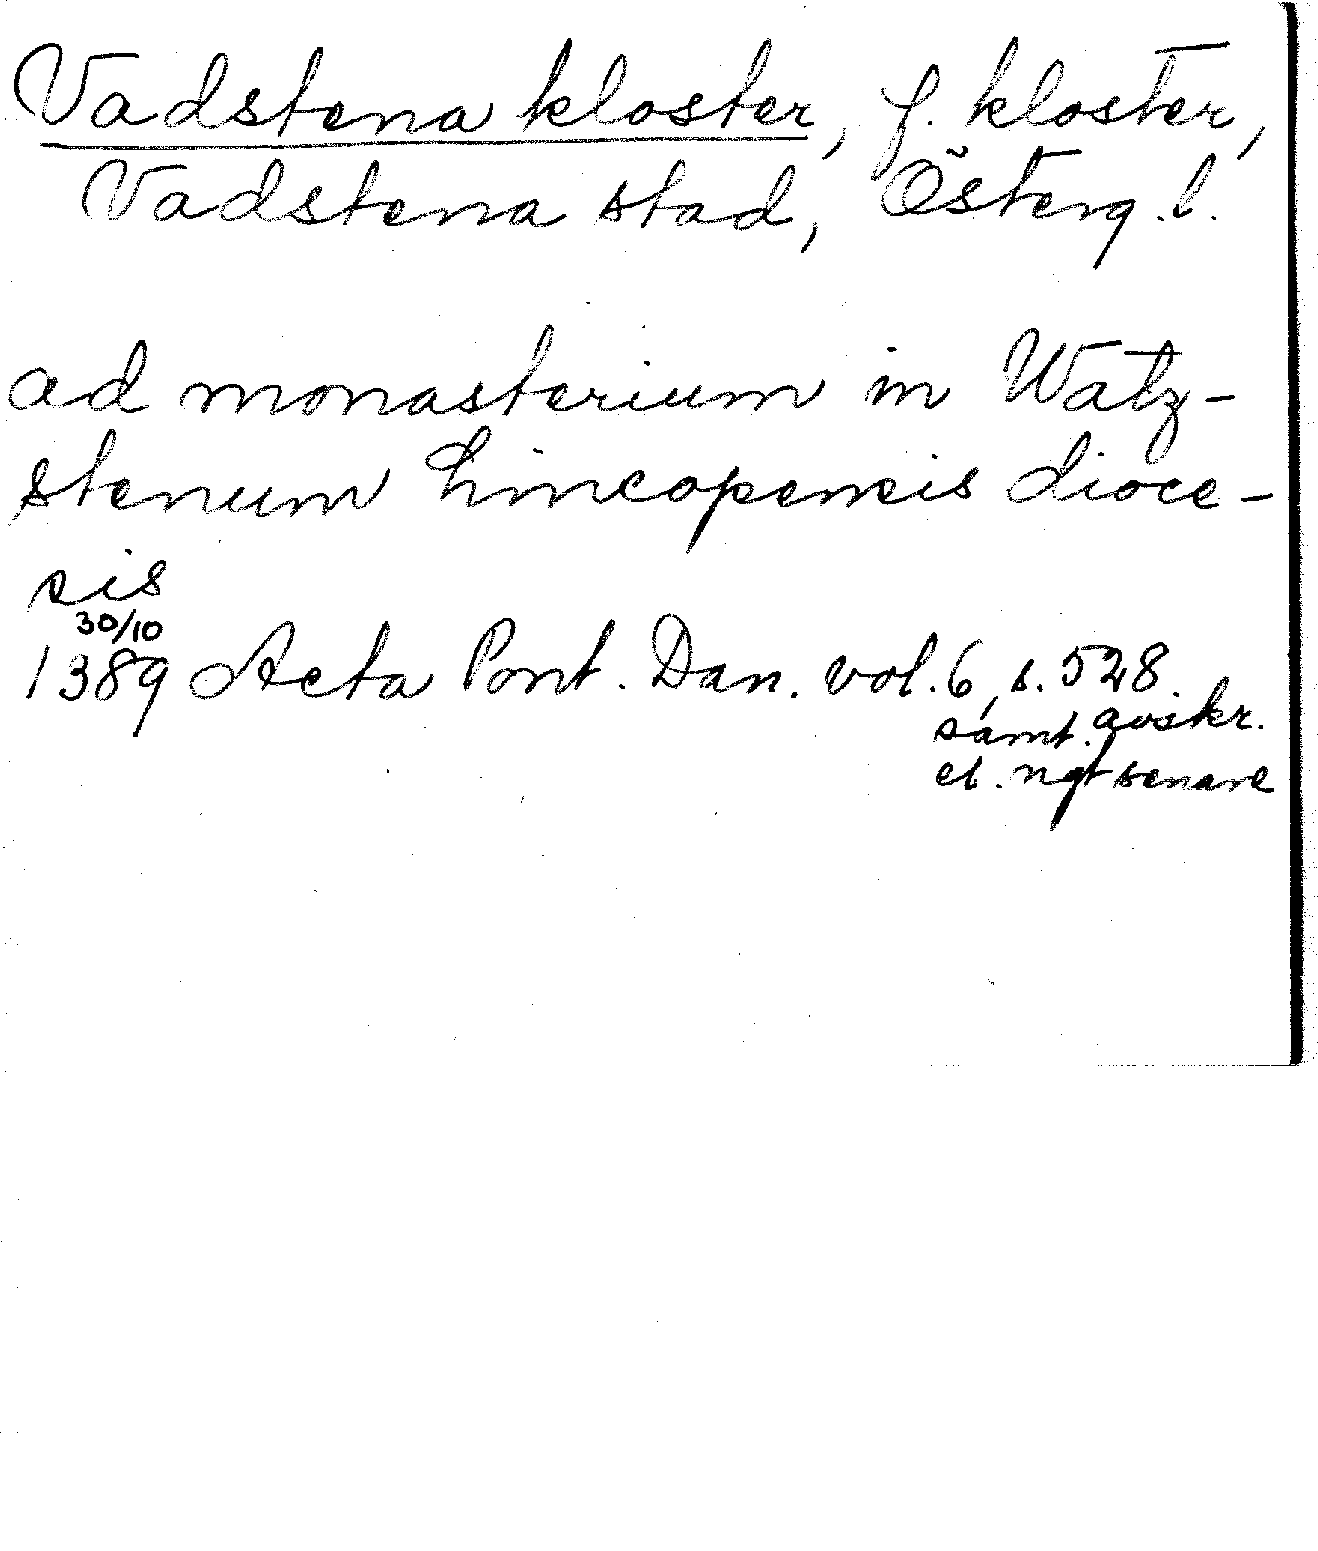 Vadstena kloster, f. kloster,
Vadstena stad, Österg. l.
ad monasterium in Watz-
stenum Lincopensis dioce-
sis
30/10
1389 Acta Pont. Dan. vol. 6, s. 528.
samt. avskr.
el. ngt senare